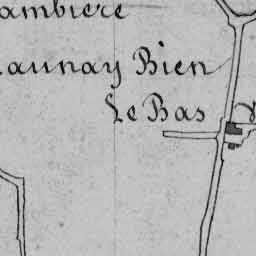 ambière
aunay Bien
Le Bas